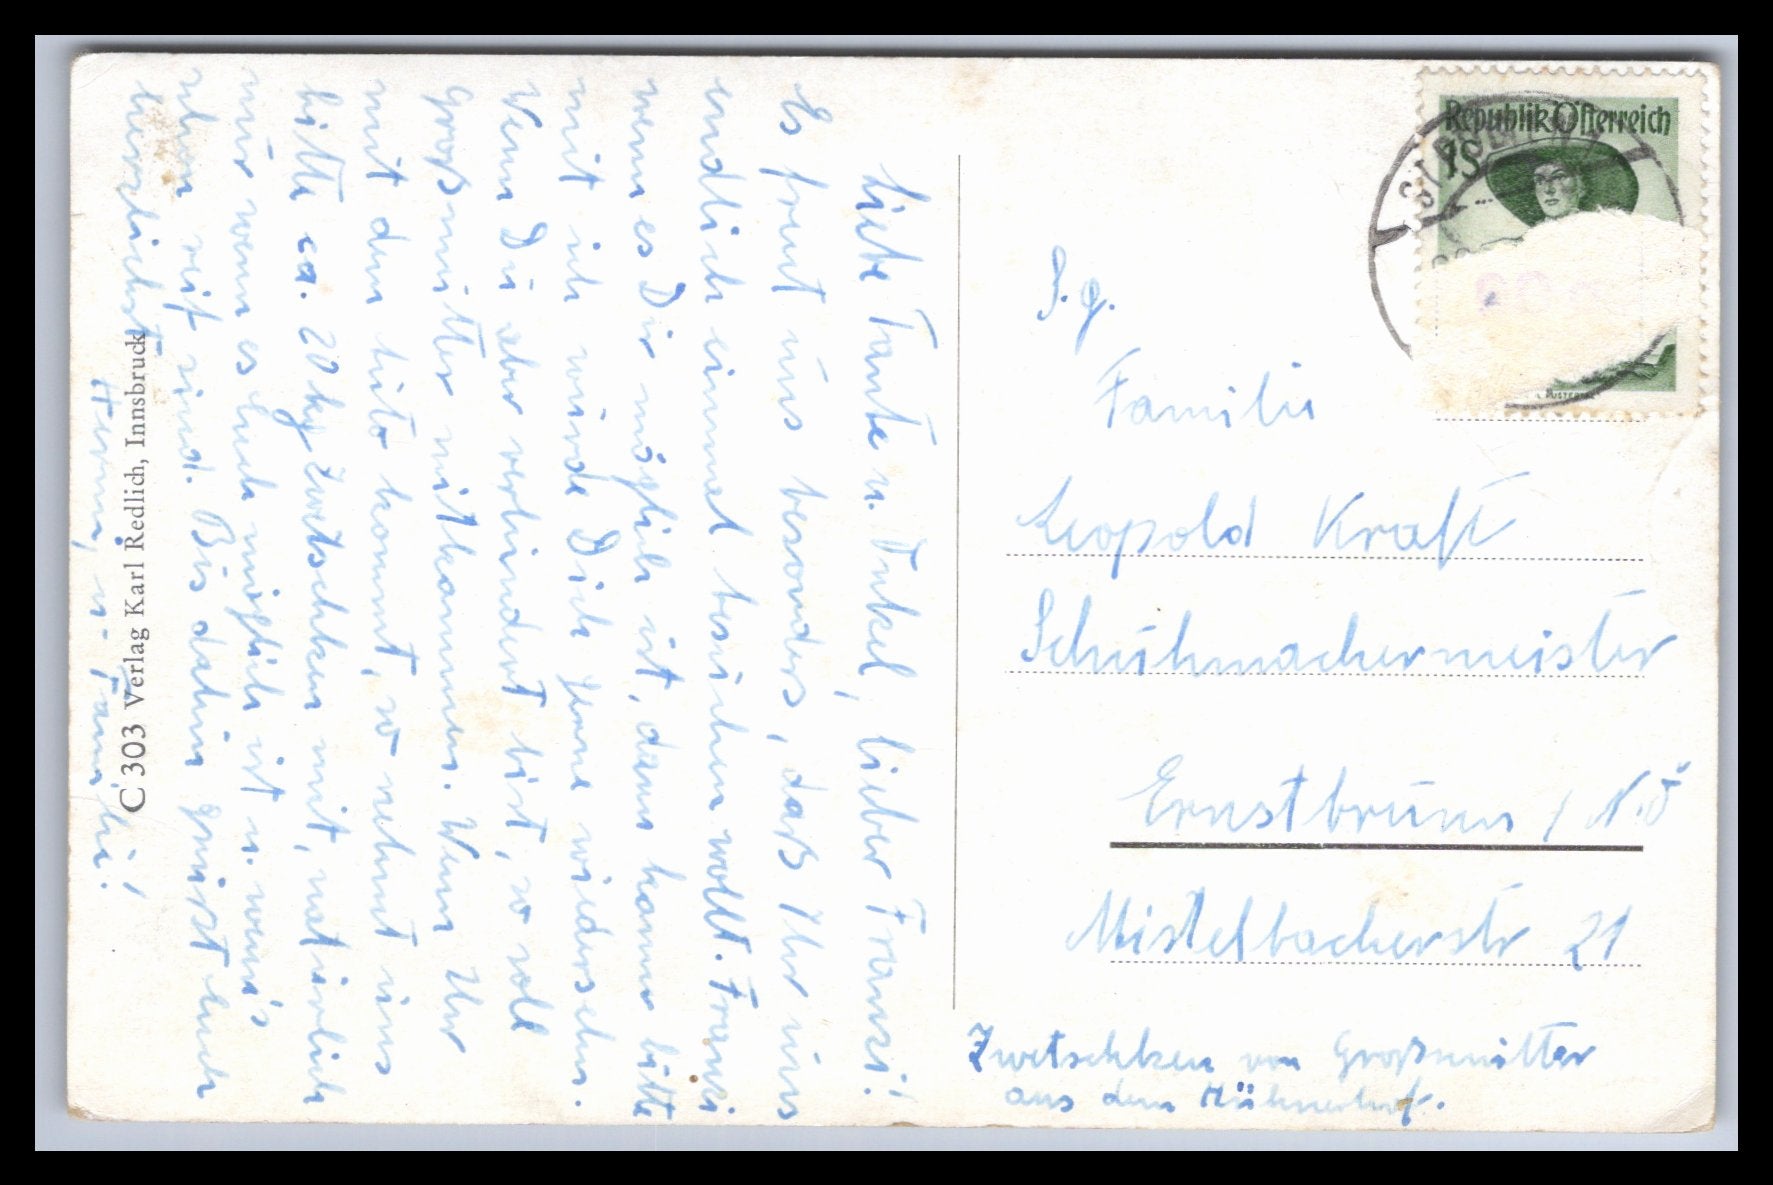 Liebe Tante u. Onkel, lieber Franzi!
Es freut uns besonders, daß Ihr uns
endlich einmal besuchen wollt. Franzi
wenn es Dir möglich ist, dann komm bitte
mit ich würde Dich gerne wiedersehn.
Wenn Du aber verhindert bist, so soll
Großmutter mitkommen. Wenn Ihr
mit dem Auto kommt, so nehmt uns
bitte ca. 20 kg Zwetschken mit, natürlich
nur wenn es Euch möglich ist u. wenn's
schon reif sind. Bis dahin grüßt Euch
herzlichst
u. Familie!
C 303 Verlag Karl Redlich, Innsbruck
Republik Österreich
1S
S. g.
Familie
Leopold Kraft
Schuhmachermeister
Ernstbrunn / N.Ö
Mistelbacherstr 21
Zwetschken von Großmutter
aus dem Hühnerhof.